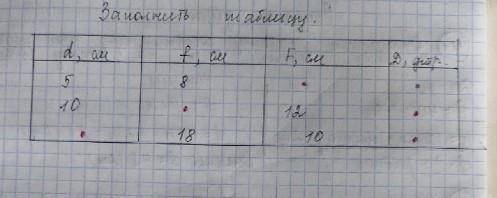 Заполнить таблицу.
d, см f, см F, см D, дптр.
5 8 • •
10 • 12 •
• 18 10 •